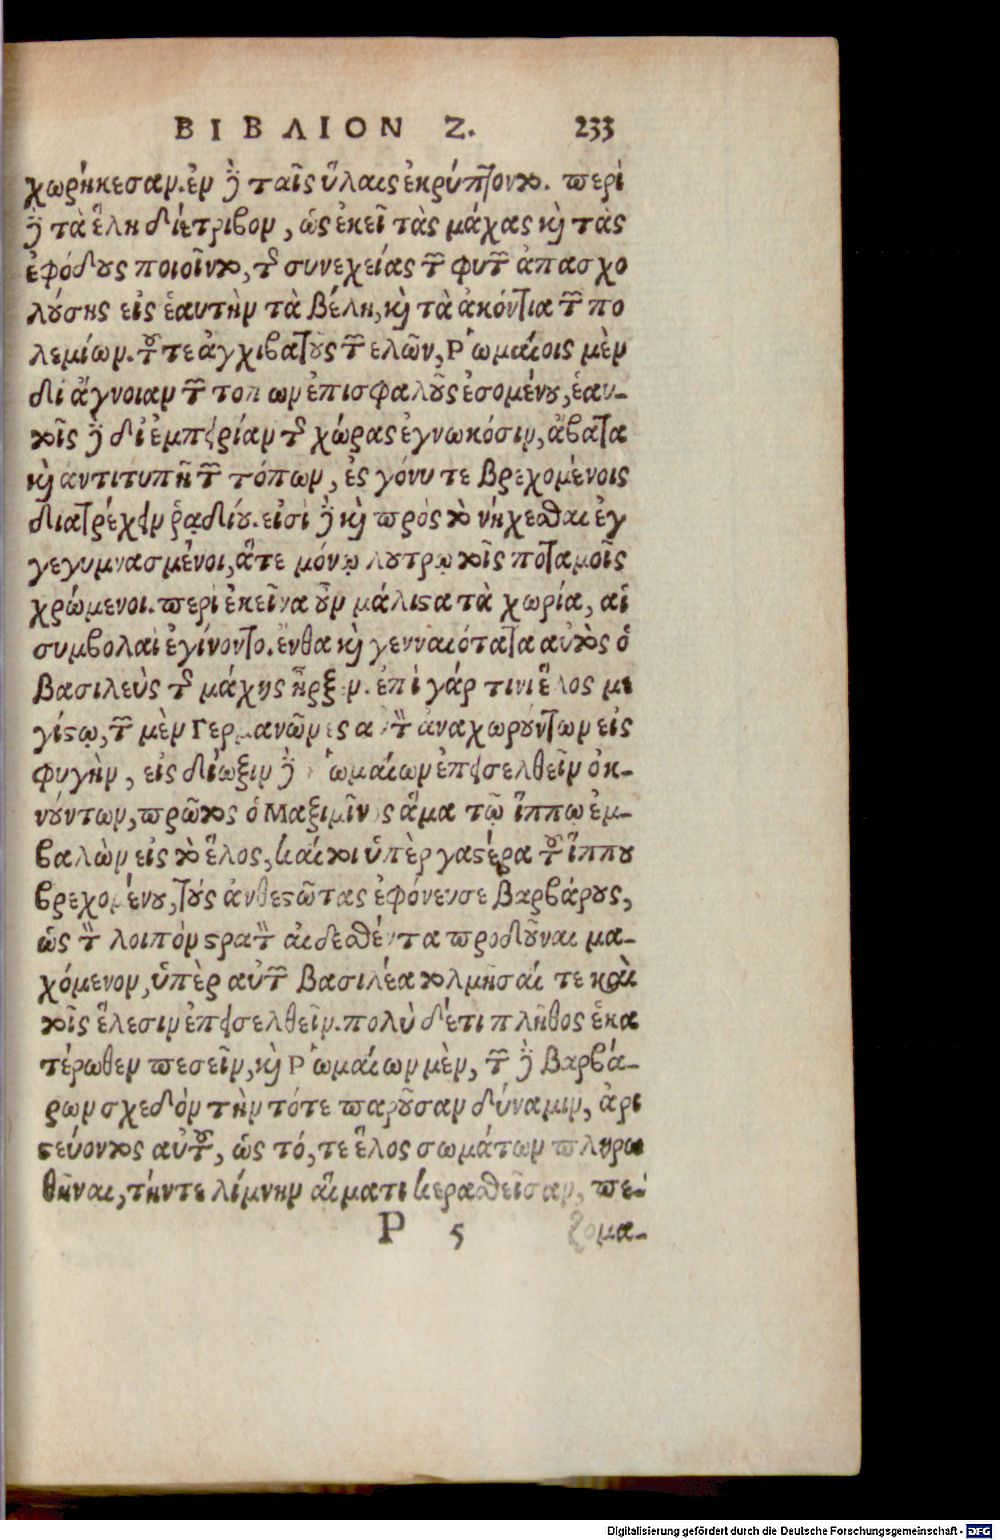 ΒΙΒΛΙΟΝ Ζ. 233
χωρήκεσαν. ἐν ᾗ ταῖς ὕλαις ἐκρύπτοντο. περὶ
δὲ τὰ ἕλη διέτριβον, ὡς ἐκεῖ τὰς μάχας καὶ τὰς
ἐφόδους ποιοῖντο, τῆς συνεχείας τῶν φυτῶν ἀπασχο
λούσης εἰς ἑαυτὴν τὰ βέλη, καὶ τὰ ἀκόντια τῶν πο
λεμίων. τοῦ τε ἀγχιβατοῦς τῶν ἑλῶν, Ῥωμαίοις μὲν
δι ἄγνοιαν τῶν τόπων ἐπισφαλοῦς ἐσομένου, ἑαυ-
τοῖς δὲ δι ἐμπειρίαν τῆς χώρας ἐγνωκόσιν, ἄβατα
καὶ ἀντιτυπῆ τῶν τόπων, ἐς γόνυ τε βρεχομένοις
διατρέχειν ῥᾳδίου. εἰσὶ δὲ καὶ πρὸς τὸ νήχεσθαι ἐγ
γεγυμνασμένοι, ἅτε μόνῳ λουτρῷ τοῖς ποταμοῖς
χρώμενοι. περὶ ἐκεῖνα οὖν μάλιστα τὰ χωρία, αἱ
συμβολαὶ ἐγίνοντο. ἔνθα καὶ γενναιότατα αὐτὸς ὁ
βασιλεὺς τῆς μάχης ἦρξεν. ἐπὶ γάρ τινι ἕλος με
γίστῳ, τῶν μὲν Γερμανῶν ἐς αὐτὸ ἀναχωρούντων εἰς
φυγὴν, εἰς δίωξιν δὲ Ῥωμαίων ἐπεισελθεῖν ὀκ-
νούντων, πρῶτος ὁ Μαξιμῖνος ἅμα τῷ ἵππω ἐμ-
βαλὼν εἰς τὸ ἕλος, καίτοι ὑπὲρ γαστέρα τοῦ ἵππου
βρεχομένου, τοὺς ἀνθεστῶτας ἐφόνευσε βαρβάρους,
ὡς τὸν λοιπὸν στρατὸν αἰδεσθέντα προδοῦναι μα-
χόμενον, ὑπὲρ αὐτῶν βασιλέα τολμῆσαί τε καὶ
τοῖς ἕλεσιν ἐπεισελθεῖν. πολὺ δέ τι πλῆθος ἑκα
τέρωθεν πεσεῖν, καὶ Ῥωμαίων μὲν, τῶν δὲ βαρβά-
ρων σχεδὸν τὴν τότε παροῦσαν δύναμιν, ἀρι
στεύοντος αὐτοῦ, ὡς τό, τε ἕλος σωμάτων πληρω
θῆναι, τήντε λίμνην αἵματι κερασθεῖσαν, πε-
P 5 ζομα-
Digitalisierung gefördert durch die Deutsche Forschungsgemeinschaft - DFG